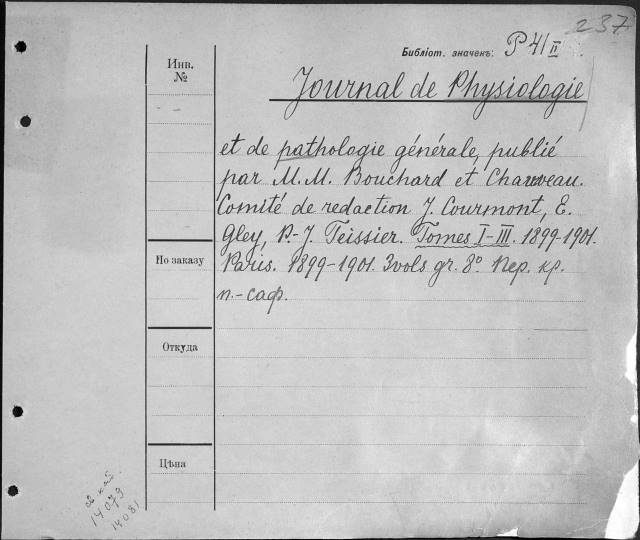 237
Библіот. значекъ: P 41 II
Инв.
№
Journal de Physiologie
et de pathologie générale, publié
par M. M. Bouchard et Chauveau.
Comité de redaction J. Courmont, E.
Gley, P.-J. Teissier. Tomes I-III. 1899-1901.
По заказу
Paris. 1899-1901. 3 vols gr. 8º Пер. кр.
п.-саф.
Откуда
Цѣна
14073
14081